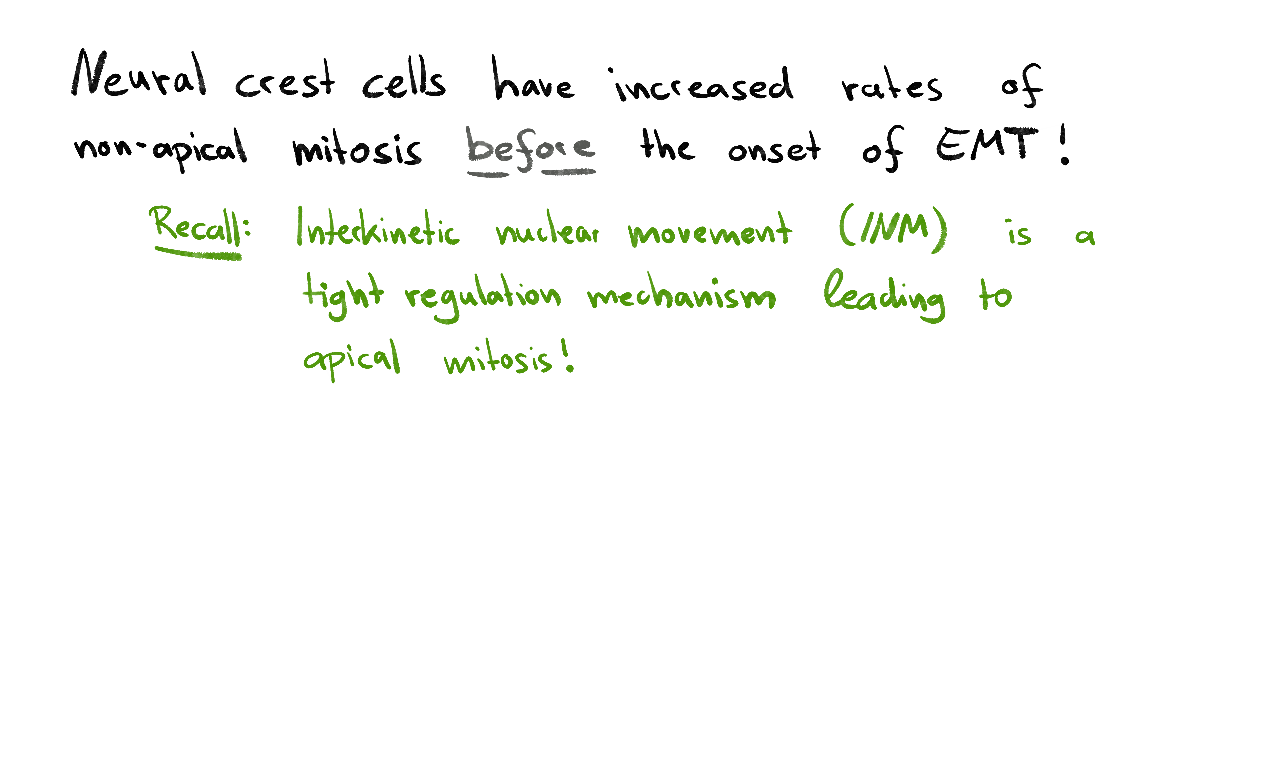 Neural crest cells have increased rates of
non-apical mitosis before the onset of EMT!
Recall: Interkinetic nuclear movement (INM) is a
tight regulation mechanism leading to
apical mitosis!